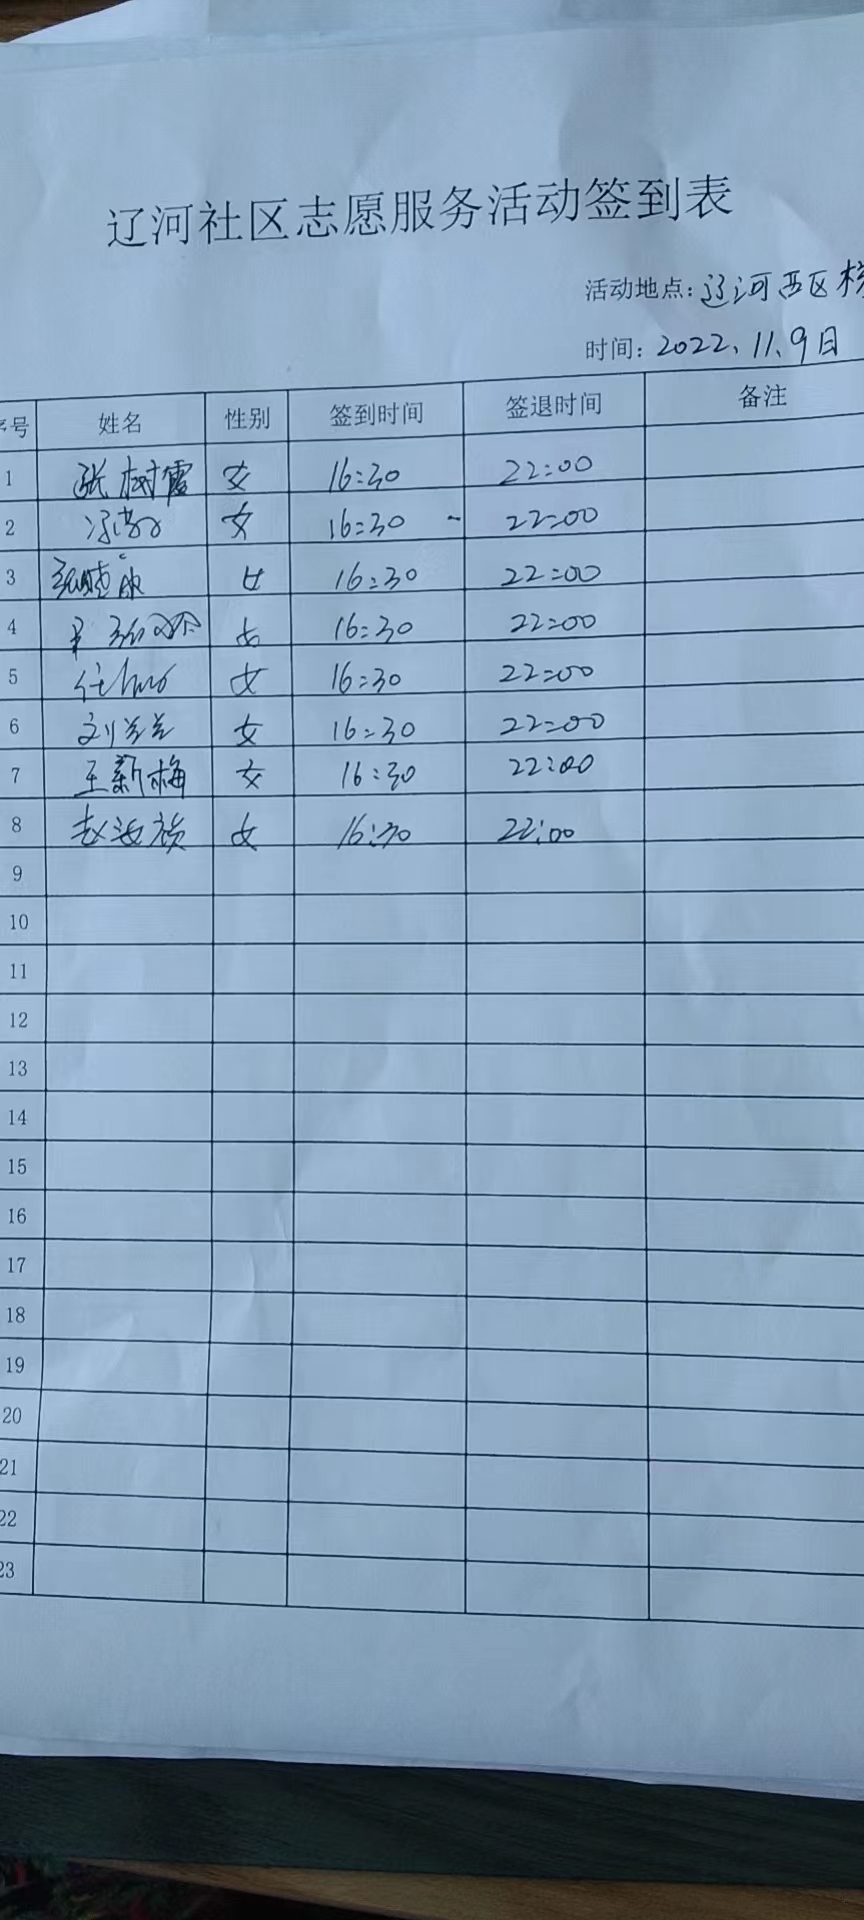 辽河社区志愿服务活动签到表
活动地点：辽河西区
时间：2022、11、9日
序号 姓名 性别 签到时间 签退时间 备注
1 张树霞 女 16:30 22:00
2 女 16:30 22:00
3 女 16:30 22:00
4 女 16:30 22:00
5 女 16:30 22:00
6 刘兰兰 女 16:30 22:00
7 王新梅 女 16:30 22:00
8 赵 女 16:30 22:00
9
10
11
12
13
14
15
16
17
18
19
20
21
22
23